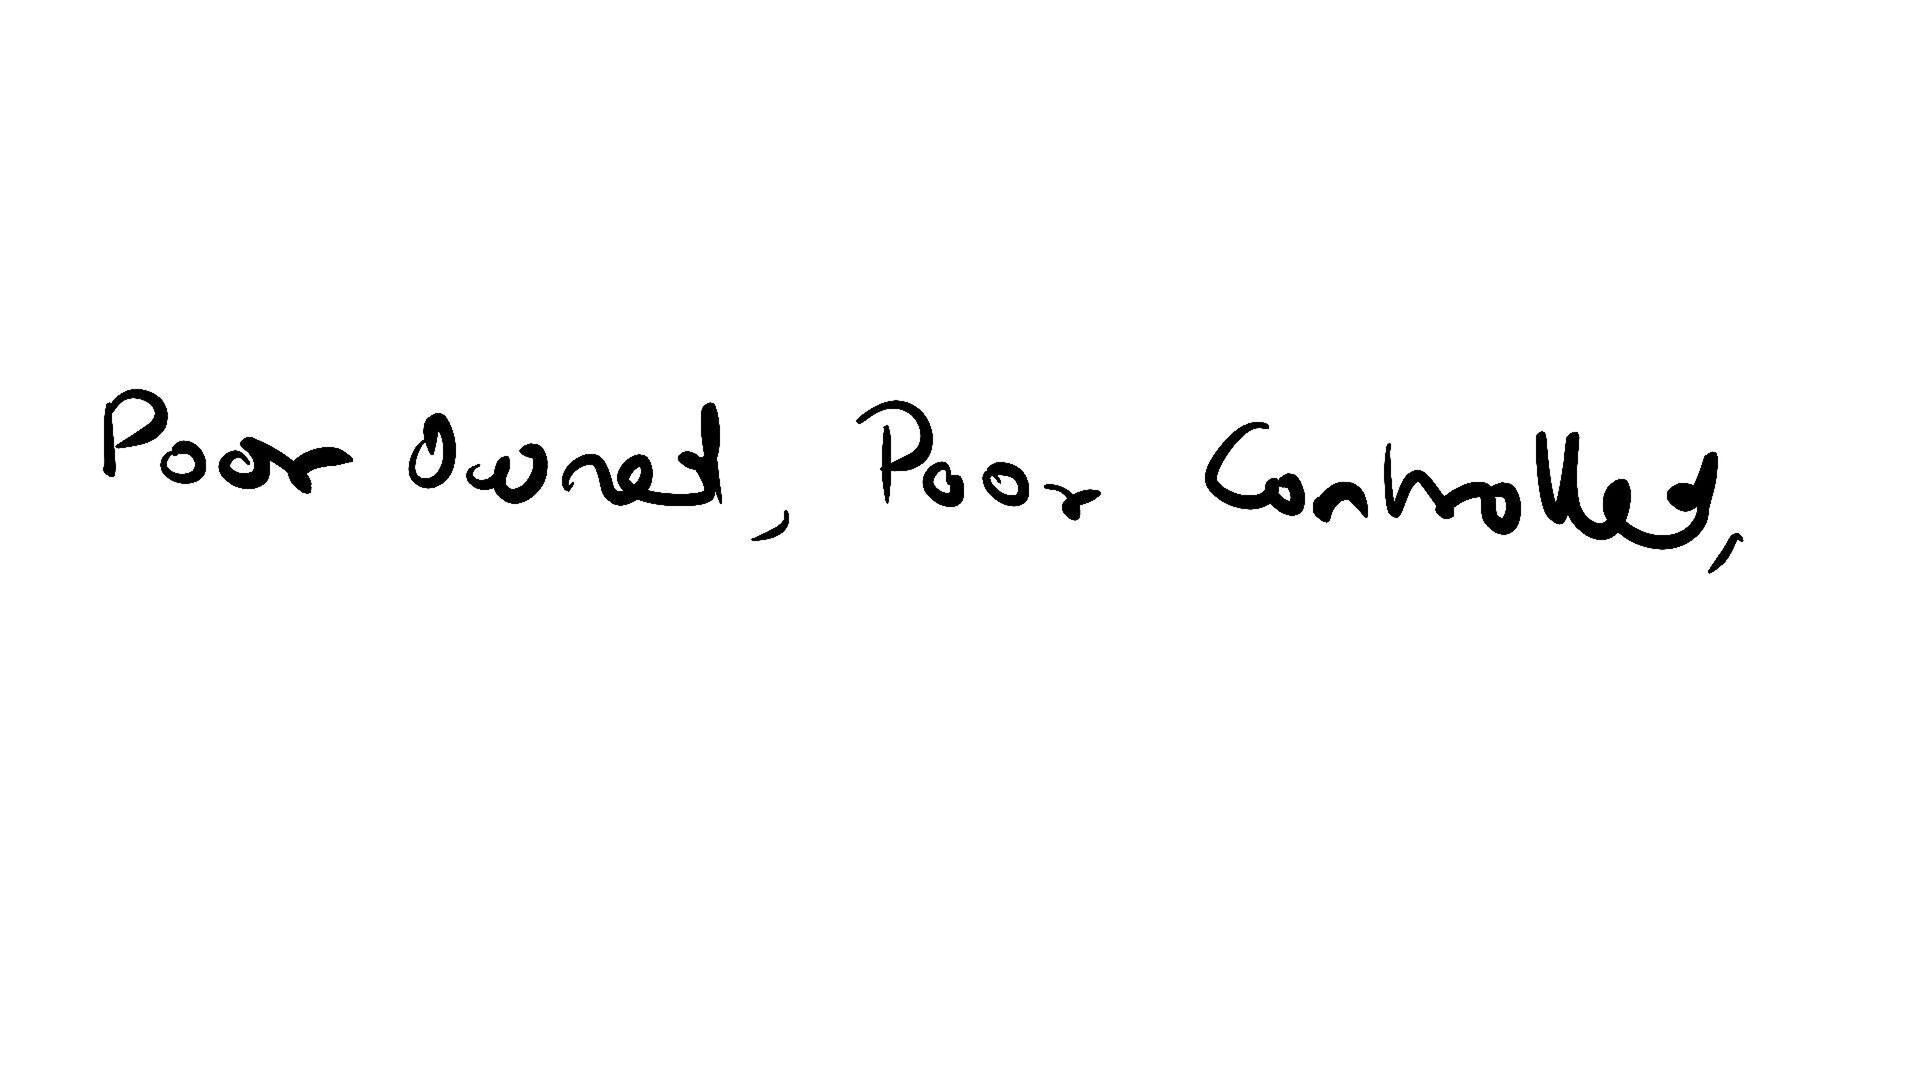 Poor Owned, Poor Controlled,